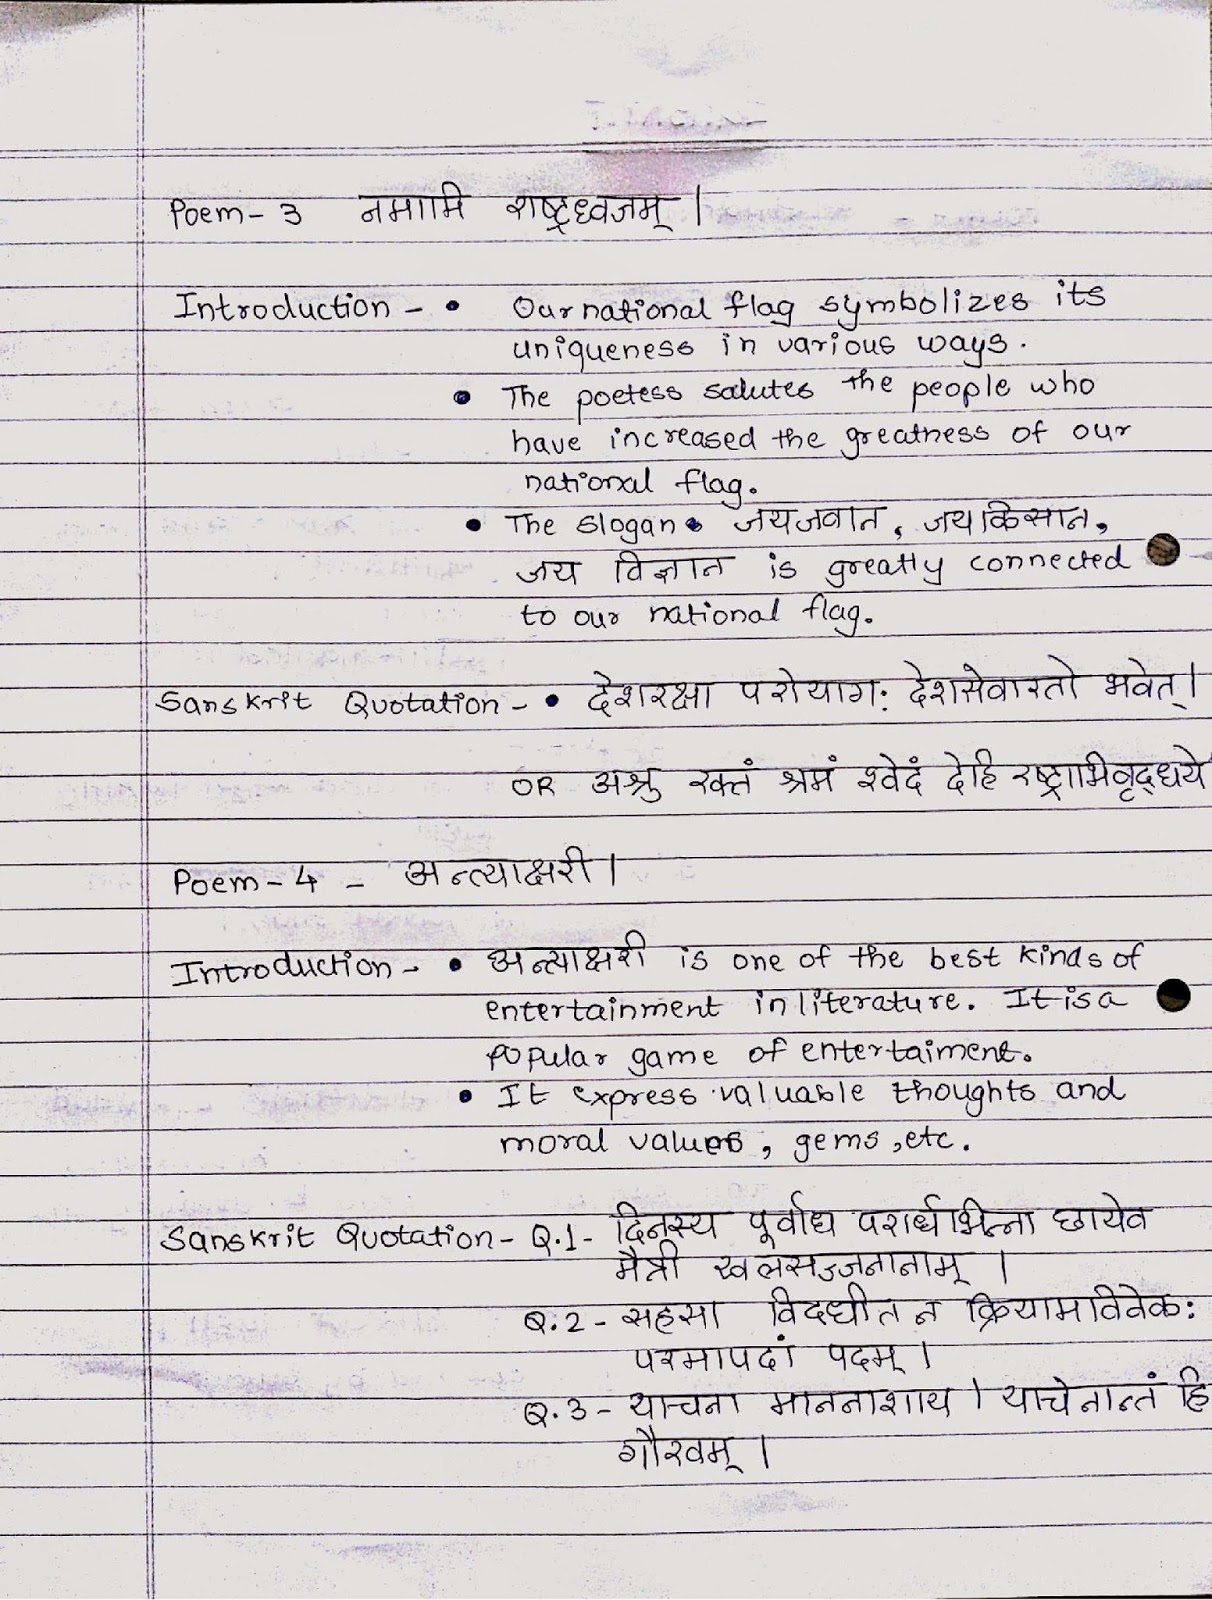 Poem - 3 नमामि राष्ट्रध्वजम् ।
Introduction - • Our national flag symbolizes its
uniqueness in various ways.
• The poetess salutes the people who
have increased the greatness of our
national flag.
• The slogan • जयजवान, जयकिसान,
जय विज्ञान is greatly connected
to our national flag.
Sanskrit Quotation - • देशरक्षा परोयाग: देशसेवारतो भवेत् ।
OR अश्रु रक्तं श्रमं श्वेदं देहि राष्ट्राभिवृद्धये
Poem - 4 - अन्त्याक्षरी ।
Introduction - • अन्त्याक्षरी is one of the best kinds of
entertainment in literature. It is a
popular game of entertaiment.
• It express valuable thoughts and
moral values, gems, etc.
Sanskrit Quotation - Q.1 - दिनस्य पूर्वाध परार्धभिन्ना छायेव
मैत्री खलसज्जनानाम् ।
Q.2 - सहसा विदधीत न क्रियामविवेक:
परमापदां पदम् ।
Q.3 - याचना माननाशाय । याचेनान्तं हि
गौरवम् ।